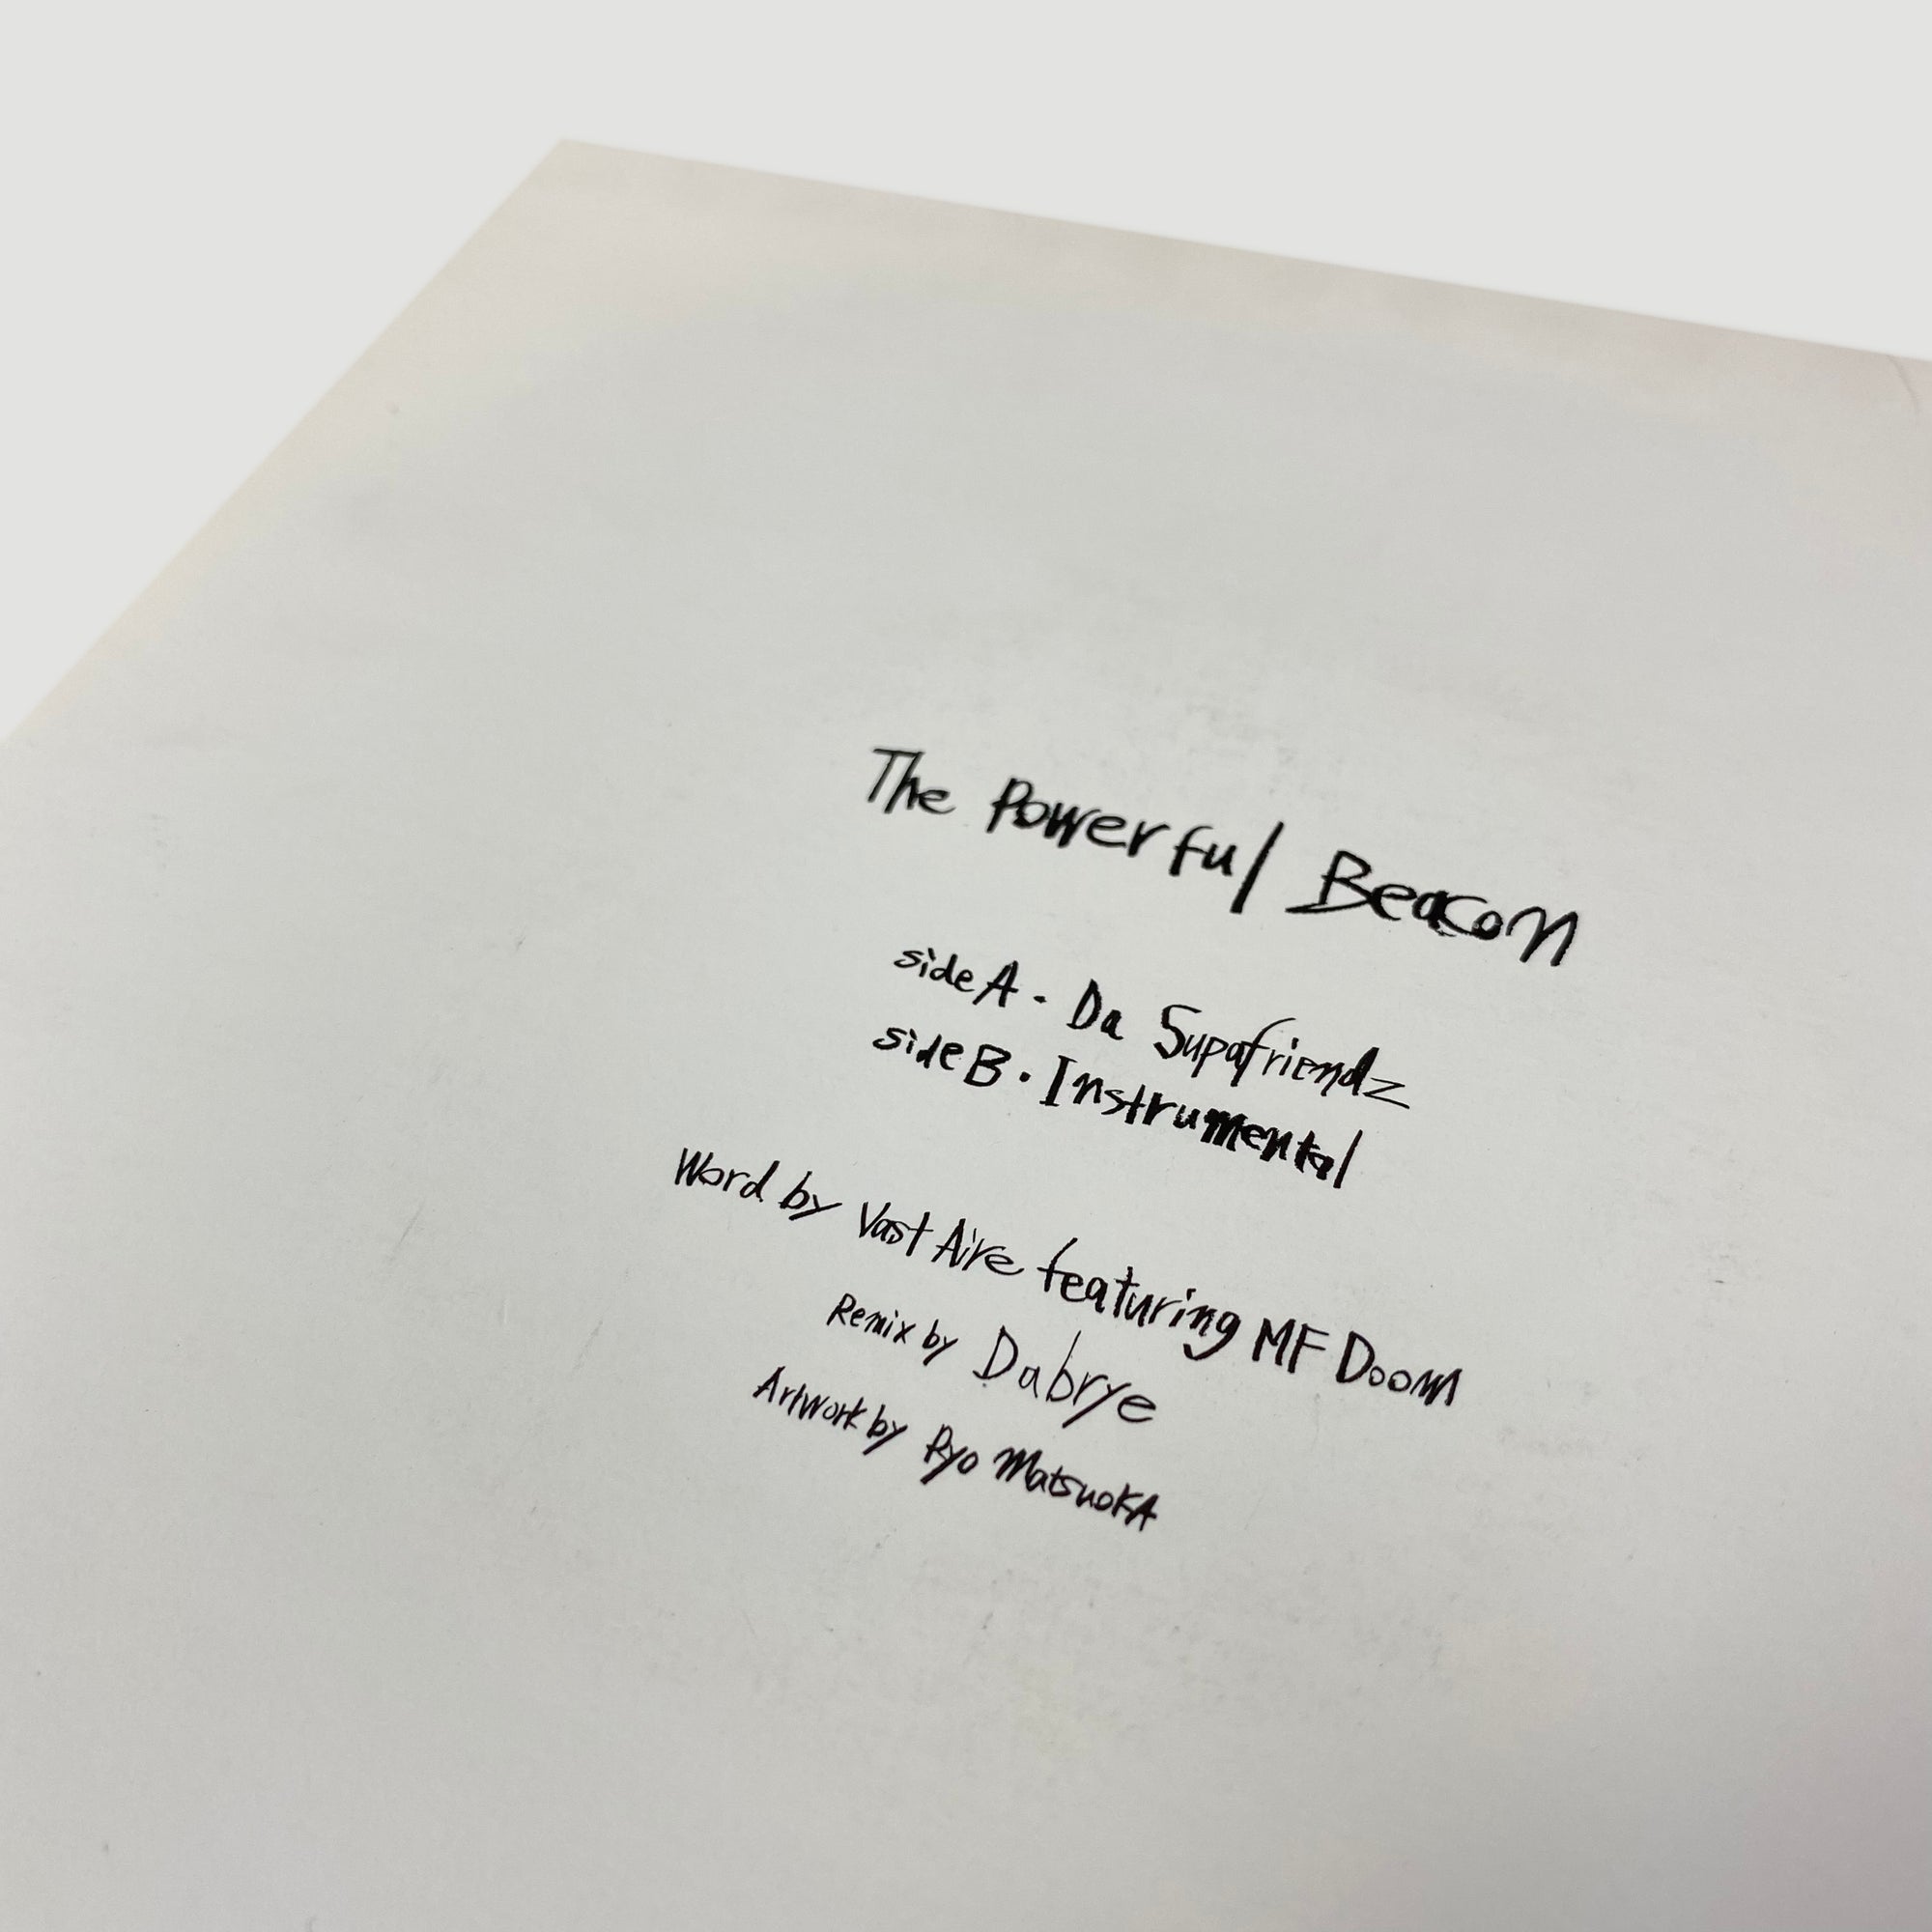 The Powerful Beacon
side A · Da Supafriendz
side B · Instrumental
Word by Vast Aire featuring MF Doom
Remix by Dabrye
Artwork by Ryo MatsuokA